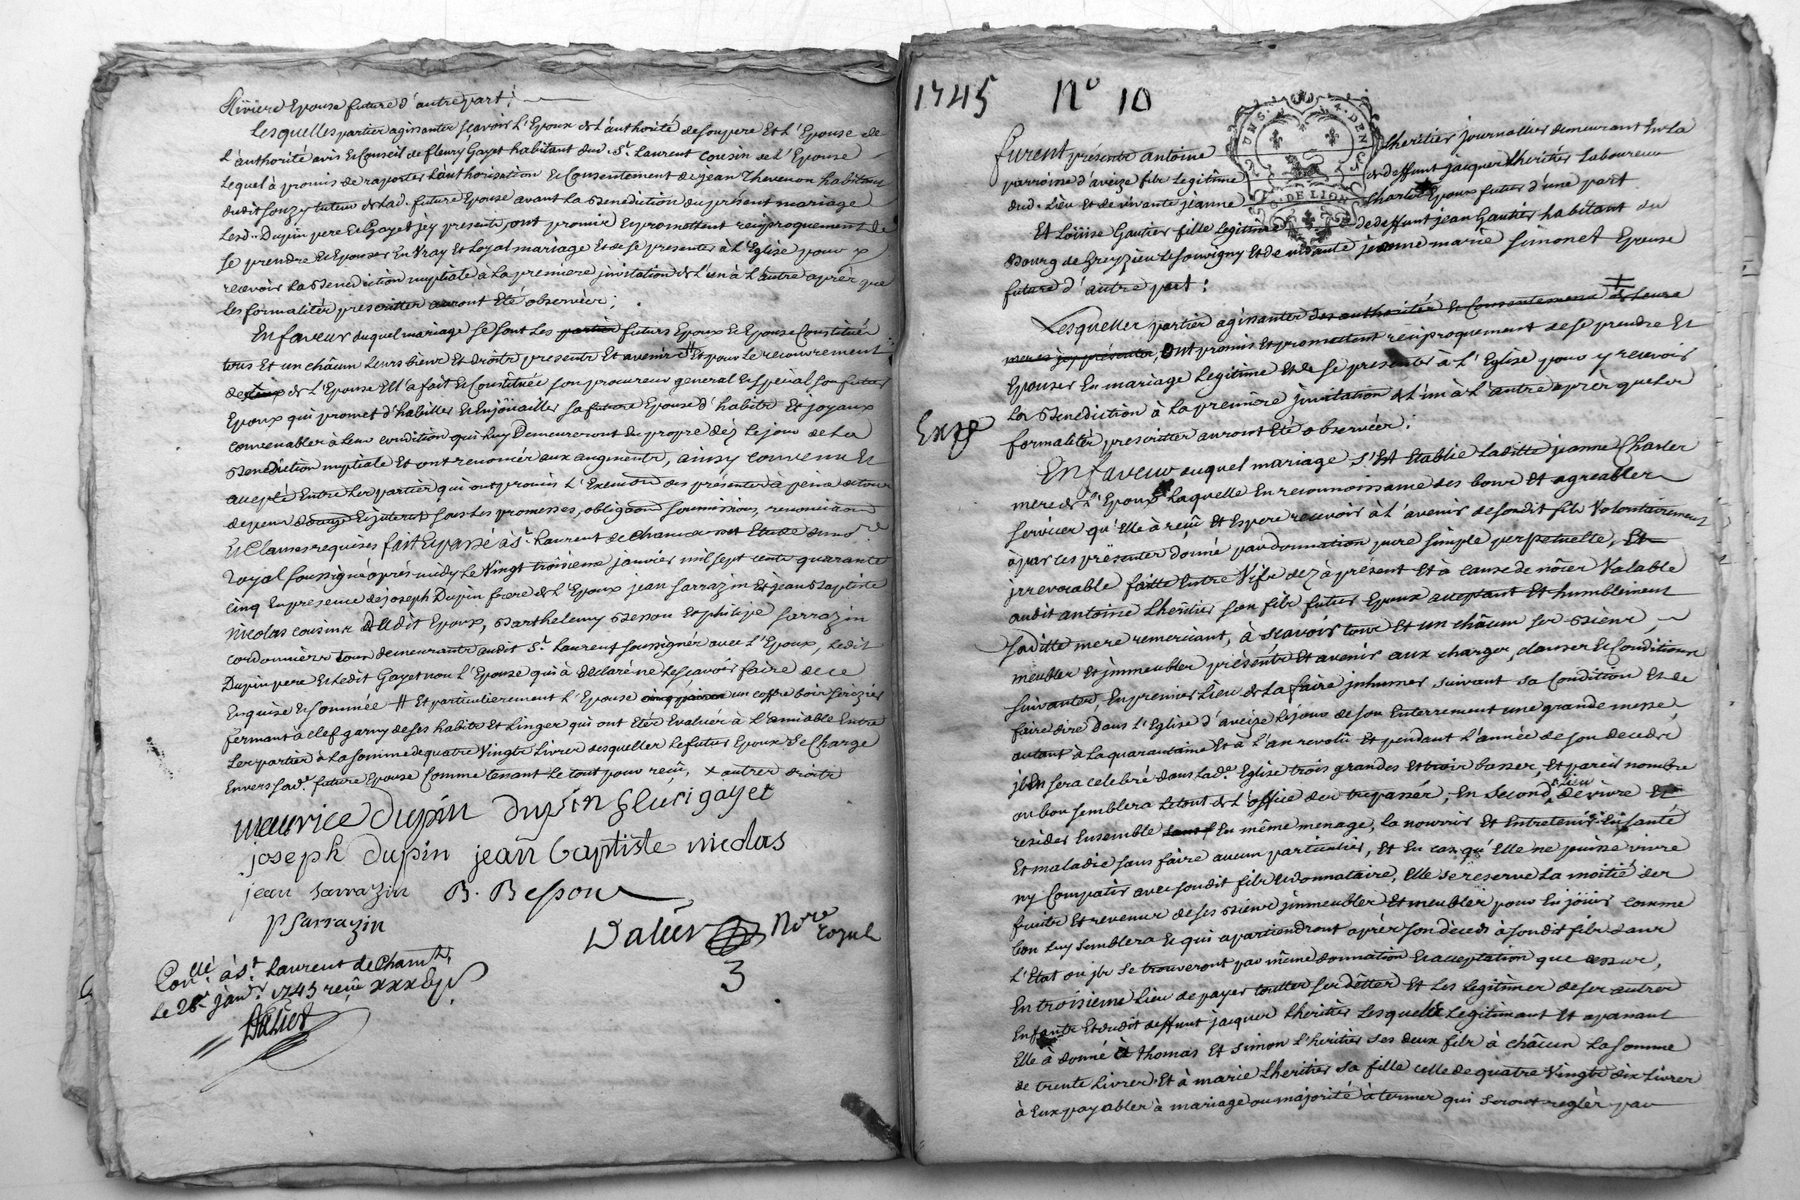 Riviere Epouse future d'autre part;
Lesquelles partier agissanter scavoir L'Epoux de L'authorité de son pere Et L'Epouse de
L'authorité avis & Conseil de fleury Gayet habitant dud. St. Laurent Cousin de L'Epouse
Lequel à promis de raporter L'authorisation & Consentement de jean Thevenon habitant
dudit Souzy tuteur de Lad. future Epouse avant La Benediction du présent mariage
Lesd. Dupin pere & Gayet jcy presents ont promis & promettent reciproquement de
se prendre & Epouser En Vray Et Loyal mariage Et de se presenter à L'Eglise pour y
recevoir La Benediction nuptiale a La premiere jnvitation de L'un à L'autre aprèr que
les formalitér prescritter auront Eté observéer;
En faveur duquel mariage se sont Les partier futurs Epoux & Epouse Constitués
tous Et un châcun Leurs bienr Et droits presents Et avenir # Et pour Le recouvrement
de de L'Epouse Ell'a fait & Constitüée son procureur general & special son futur
Epoux qui promet d'habiller & Enjoüailler sa future Epouse d'habits Et joyaux
convenabler à Leur condition qui Luy Demeureront En propre dèz Le jour de La
Benediction nuptiale Et ont renoncér aux augments, ainsy convenu Et
accepté Entre Les partier qui ont promis L'Execution des presenter à peine de tour
depens domage & jnterest sous Les promesses, obligaõns soumissions, renonciaõns
& Clauses requises fait & passé à St. Laurent de Chamou Etude du no.re
royal soussigné après midy Le Vingt troisieme janvier mil sept cents quarante
cinq En presence de joseph Dupin frere de L'Epoux jean Sarrazin & jean Baptiste
Nicolas cousins dudit Epoux, Barthelemy Besson & philipe Sarrazin
cordonniers tous demeurants audit St. Laurent soussignés avec L'Epoux, Ledit
Dupin pere & Ledit Gayet non L'Epouse qui à declaré ne Le scavoir faire de ce
Enquise & sommée # Et particulierement L'Epouse un coffre bois serizier
fermant à clef garny de ses habits Et Linges qui ont Eté Evalués à L'amiable Entre
Les partier à La somme de quatre Vingts Livres desqueller Le futur Epoux se Charge
Envers sad. future Epouse comme tenant Le tout pour reçü, x autres droits
maurice dupin dupin fleuri gayet
joseph dupin jean baptiste nicolas
jean sarrazin B. Besson
P Sarrazin
Daliér Nore royal
3
Conllé à St Laurent de Cham.t
Le 28e janv. 1745 reçü xxx
Daliér
1745 No 10
Furent présents antoine Lheritier journalier demeurant En La
parroisse d'aveize fils Legitime de deffunt jacques Lheritier Laboureur
dud. Lieu Et de vivante jeanne Charles Epoux futur d'une part
Et Loüise Gautier fille Legitime de deffunt jean Gautier habitant du
Bourg de Greyzieu Le Souvigny Et de vivante jeanne marie Simonet Epouse
future d'autre part:
Lesqueller partier agissanter des authorités & Consentement de Leurs
meres jcy présentes, ont promis Et promettent reciproquement de se prendre Et
Epouser En mariage Legitime Et de se presenter à L'Eglise pour y recevoir
La Benediction à La premiere jnvitation de L'un à L'autre aprèr que Les
formalitér prescritter auront Eté observéer;
Exp
En faveur duquel mariage s'Est Etablie Laditte jeanne Charles
mere de L'Epoux Laquelle En reconnoissance des bons Et agreabler
services qu'Elle à reçü Et Espere recevoir à L'avenir de son dit fils Volontairement
à par ces présenter donné par donnation pure simple perpetuelle, Et
jrrevocable faitte Entre Vifs dez à présent Et à cause de nôces Valable
audit antoine Lheritier son fils futur Epoux acceptant Et humblement
saditte mere remerciant, à scavoir tous Et un châcun ses Biens,
meubles Et jmmeubles présents Et avenir aux charger, clauser & Conditions
suivanter, En premier Lieu de La faire jnhumer suivant sa condition Et de
faire dire Dans L'Eglise d'aveize Le jour de son Enterrement une grande messe
autant à La quarantaine Et à L'an revolü Et pendant L'année de son decedr
jl En sera celebré dans Lad.e Eglise trois grandes Et trois basses, Et pareil nombre
ou bon semblera Le tout de L'office des trepassés, En Second Lieu de vivre Et
resider Ensemble En même menage, La nourrir Et Entretenir En santé
Et maladie sans faire aucun particulier, Et En cas qu'Elle ne puisse vivre
ny Compatir avec sondit fils & donnataire, Elle se reserve La moitié der
fruits Et revenus de ses Biens jmmeubler Et meubler pour En joüir comme
bon Luy semblera & qui apartiendront après son décèds à sondit fils dans
L'Etat ou jls se trouveront par même donnation & acceptation que dessus,
En troisieme Lieu de payer toutter ses dêttes Et Les Legitimer de ses autres
Enfants Et dudit deffunt jacques Lheritier Lesquelles Legitimant Et apanant
Elle à donné à thomas Et Simon L'heritier ses deux fils à châcun La somme
de trente Livres. Et à marie Lheritier sa fille celle de quatre Vingts dix Livres
à Eux payabler à mariage ou majorité à termes qui seront reglés par